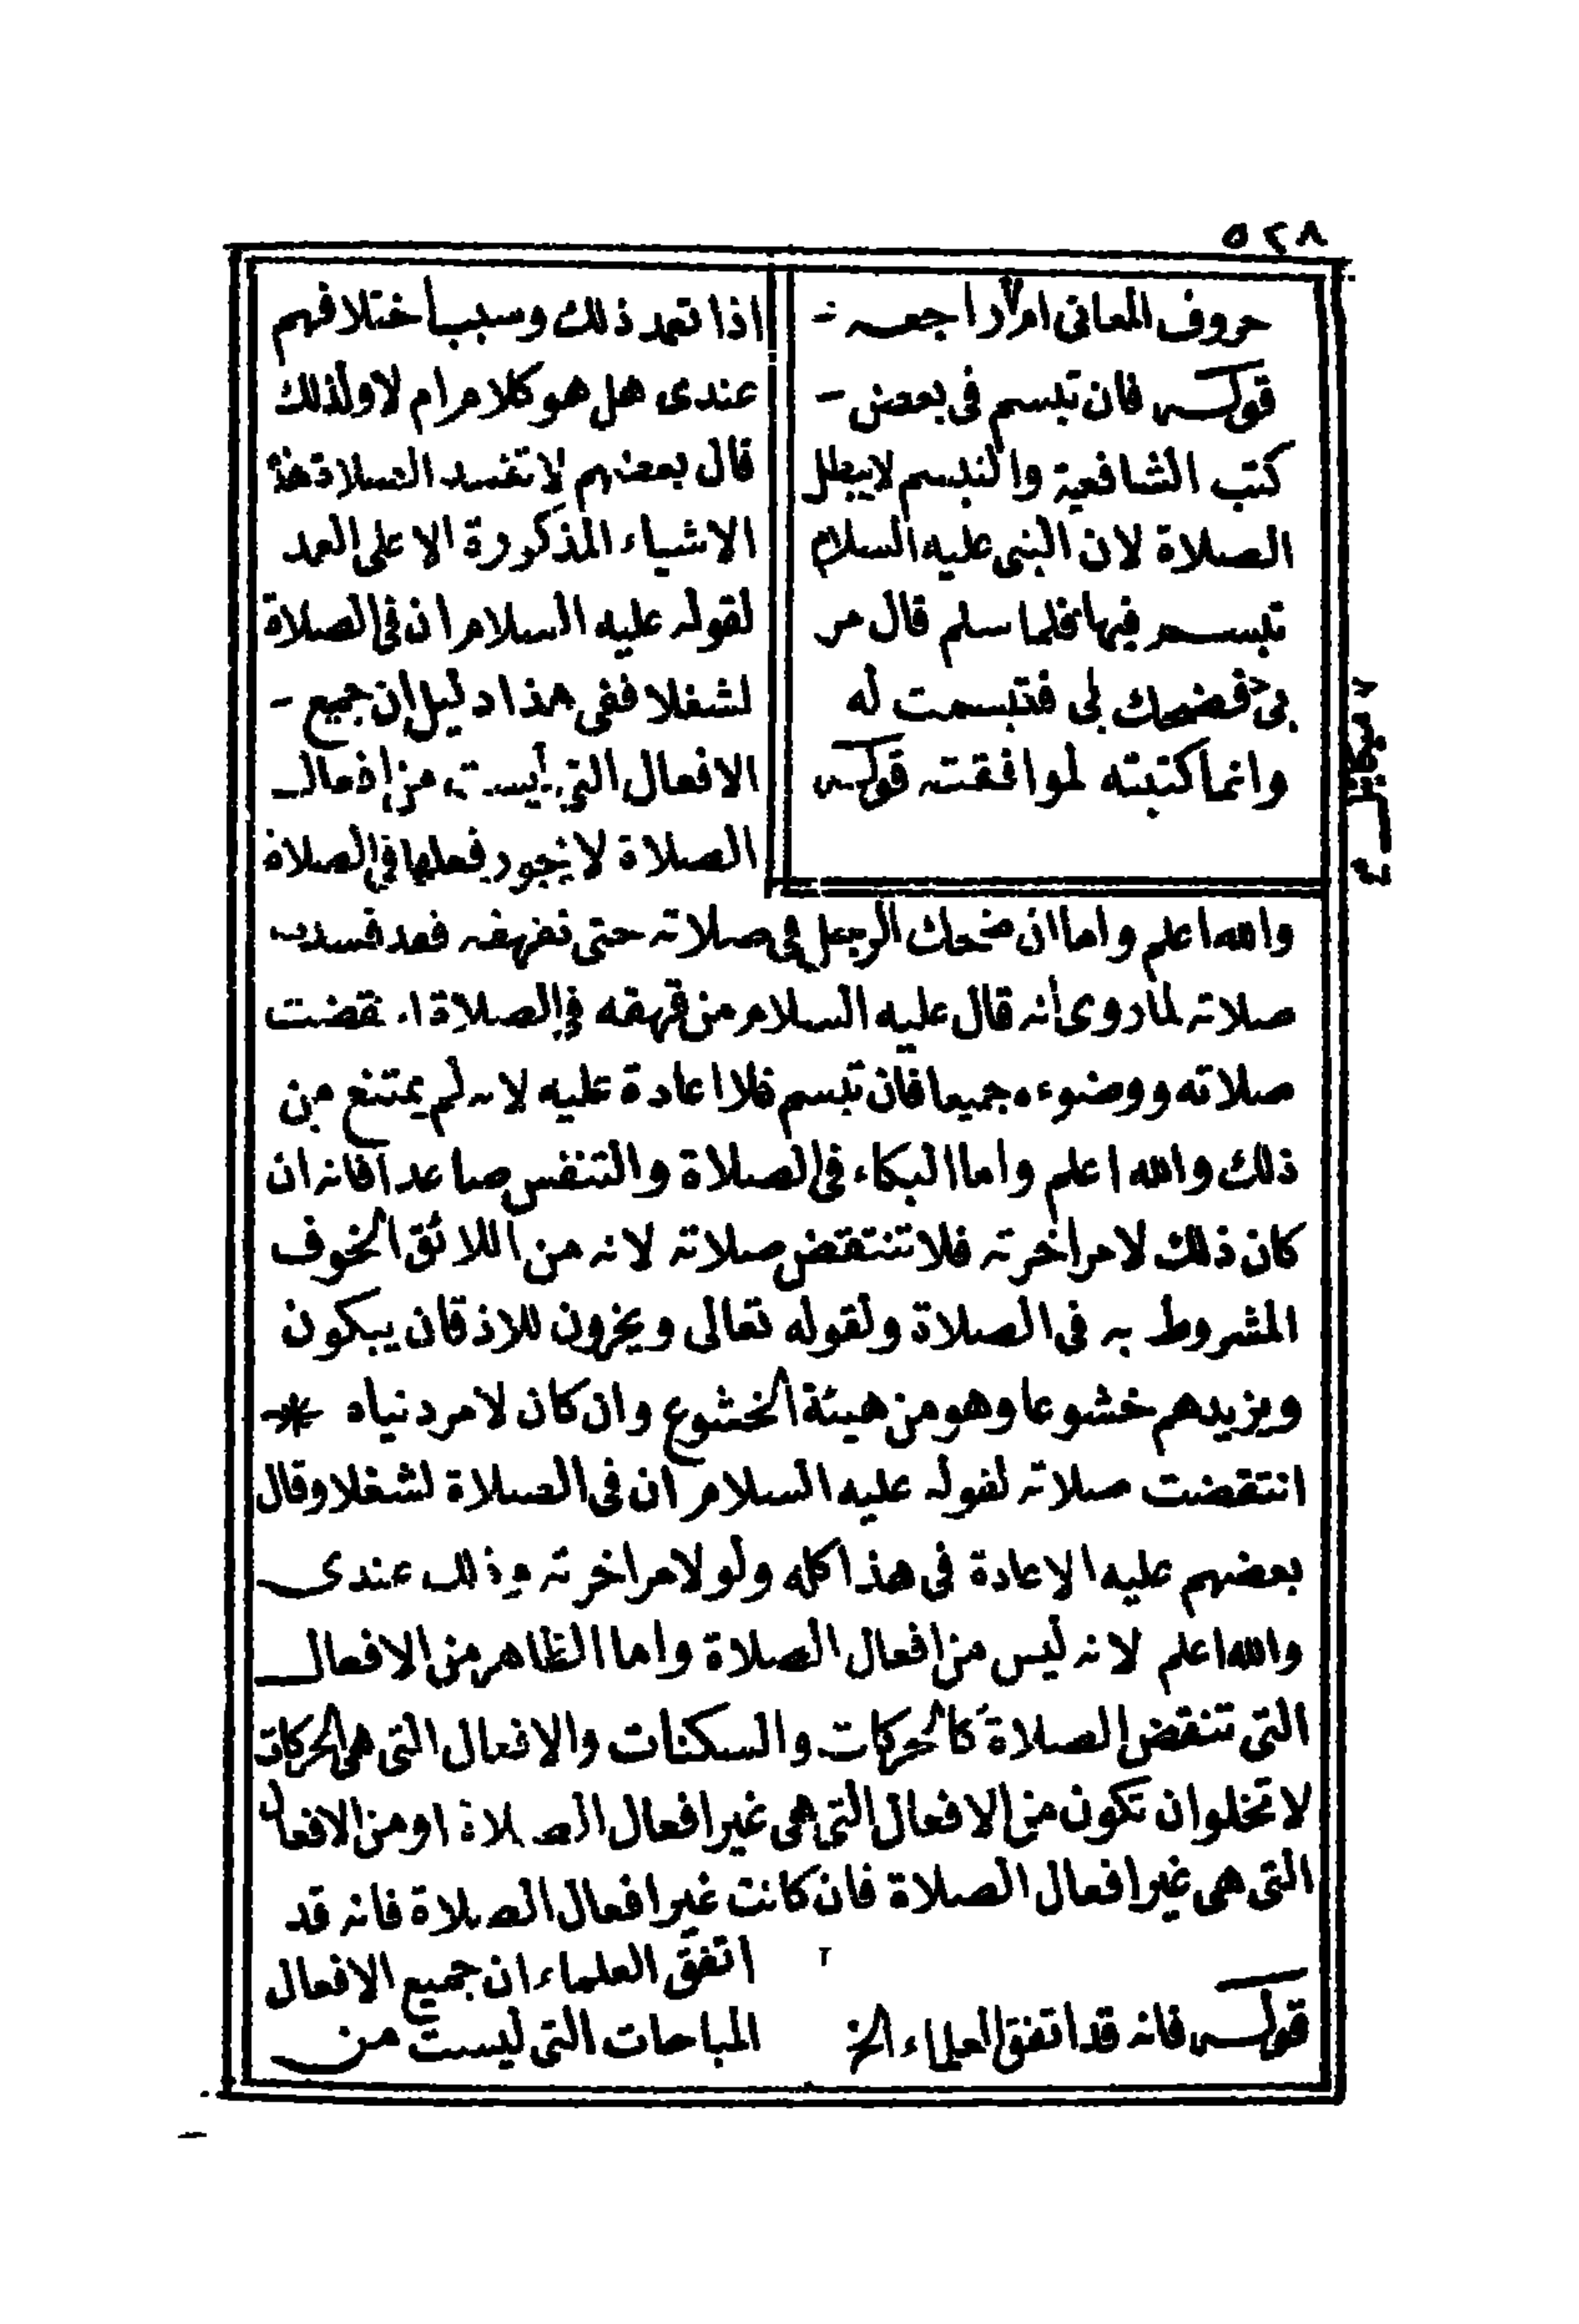 ٥٢٨
حروف المعانى ام لا راجعه -
قوله فان تبسم فى بعض -
كتب الشافعية والتبسم لا يبطل
الصلاة لان النبى عليه السلام
تبسم فيها فلما سلم قال مر
بى فضحك لى فتبسمت له
وانما كتبته لموافقته قوله
اذا تعمد ذلك وسبب أختلافهم
عندى هل هو كلام ام لا ولذلك
قال بعضهم لا تفسد الصلاة هذه
الاشياء المذكورة الا على العمد
لقوله عليه السلام ان فى الصلاة
لشغلا ففى هذا دليل ان جميع -
الافعال التى ليست من افعال
الصلاة لا يجوز فعلها فى الصلاة
والله اعلم واما ان ضحك الرجل فى صلاته حتى تقهقه فقد فسدت
صلاته لما روى أنه قال عليه السلام من قهقه فى الصلاة انقضت
صلاته ووضوءه جميعا فان تبسم فلا اعادة عليه لانه لم يمتنع من
ذلك والله اعلم واما البكاء فى الصلاة والتنفس صاعدا فانه ان
كان ذلك لامر اخرته فلا تنتقض صلاته لانه من اللائق الخوف
المشروط به فى الصلاة ولقوله تعالى ويخرون للاذقان يبكون
ويزيدهم خشوعا وهو من هيئة الخشوع وان كان لامر دنياه *
انتقضت صلاته لقوله عليه السلام ان فى الصلاة لشغلا وقال
بعضهم عليه الاعادة فى هذا كله ولو لامر اخرته وذلك عندى
والله اعلم لانه ليس من افعال الصلاة واما الظاهر من الافعال
التى تنقض الصلاة كالحركات والسكنات والافعال التى هى الحركات
لا تخلوان تكون من الافعال التى هى غير افعال الصلاة او من الافعال
التى هى غير افعال الصلاة فان كانت غير افعال الصلاة فانه قد
اتفق العلماء ان جميع الافعال
المباحات التى ليست من
قوله فانه قد اتفق العلماء الخ